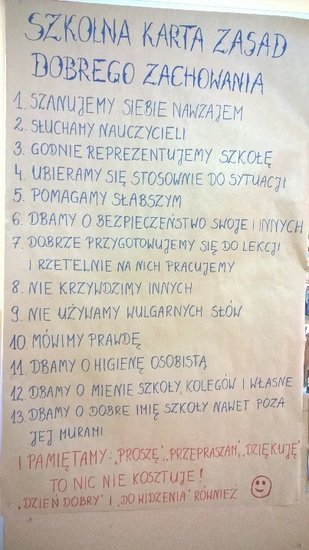 SZKOLNA KARTA ZASAD
DOBREGO ZACHOWANIA
1. SZANUJEMY SIEBIE NAWZAJEM
2. SŁUCHAMY NAUCZYCIELI
3. GODNIE REPREZENTUJEMY SZKOŁĘ
4. UBIERAMY SIĘ STOSOWNIE DO SYTUACJI
5. POMAGAMY SŁABSZYM
6. DBAMY O BEZPIECZEŃSTWO SWOJE I INNYCH
7. DOBRZE PRZYGOTOWUJEMY SIĘ DO LEKCJI
I RZETELNIE NA NICH PRACUJEMY
8. NIE KRZYWDZIMY INNYCH
9. NIE UŻYWAMY WULGARNYCH SŁÓW
10 MÓWIMY PRAWDĘ
11. DBAMY O HIGIENĘ OSOBISTĄ
12 DBAMY O MIENIE SZKOŁY, KOLEGÓW I WŁASNE
13. DBAMY O DOBRE IMIĘ SZKOŁY NAWET POZA
JEJ MURAMI
I PAMIĘTAMY: „PROSZĘ”, „PRZEPRASZAM”, „DZIĘKUJĘ”
TO NIC NIE KOSZTUJE!
„DZIEŃ DOBRY” I „DO WIDZENIA” RÓWNIEŻ